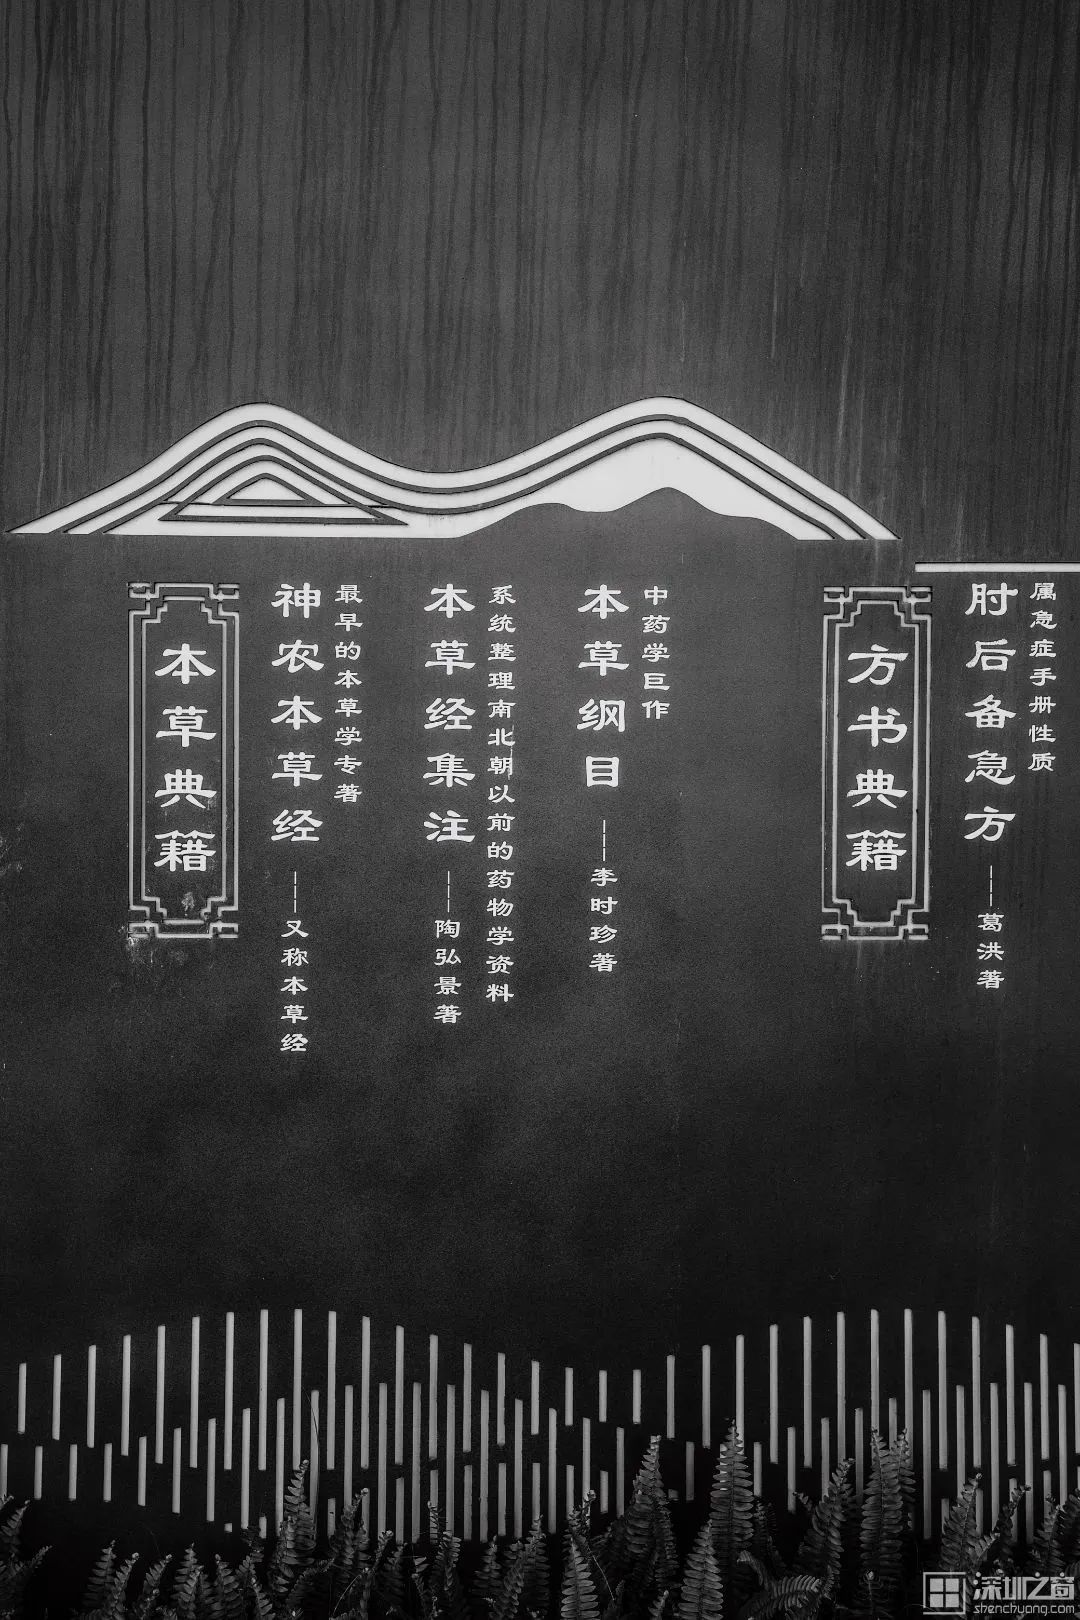 本草典籍
神农本草经
----又称本草经
最早的本草学专著
本草经集注
----陶弘景著
系统整理南北朝以前的药物学资料
本草纲目
----李时珍著
中药学巨作
方书典籍
肘后备急方
----葛洪著
属急症手册性质
深圳之窗
shenchuang.com